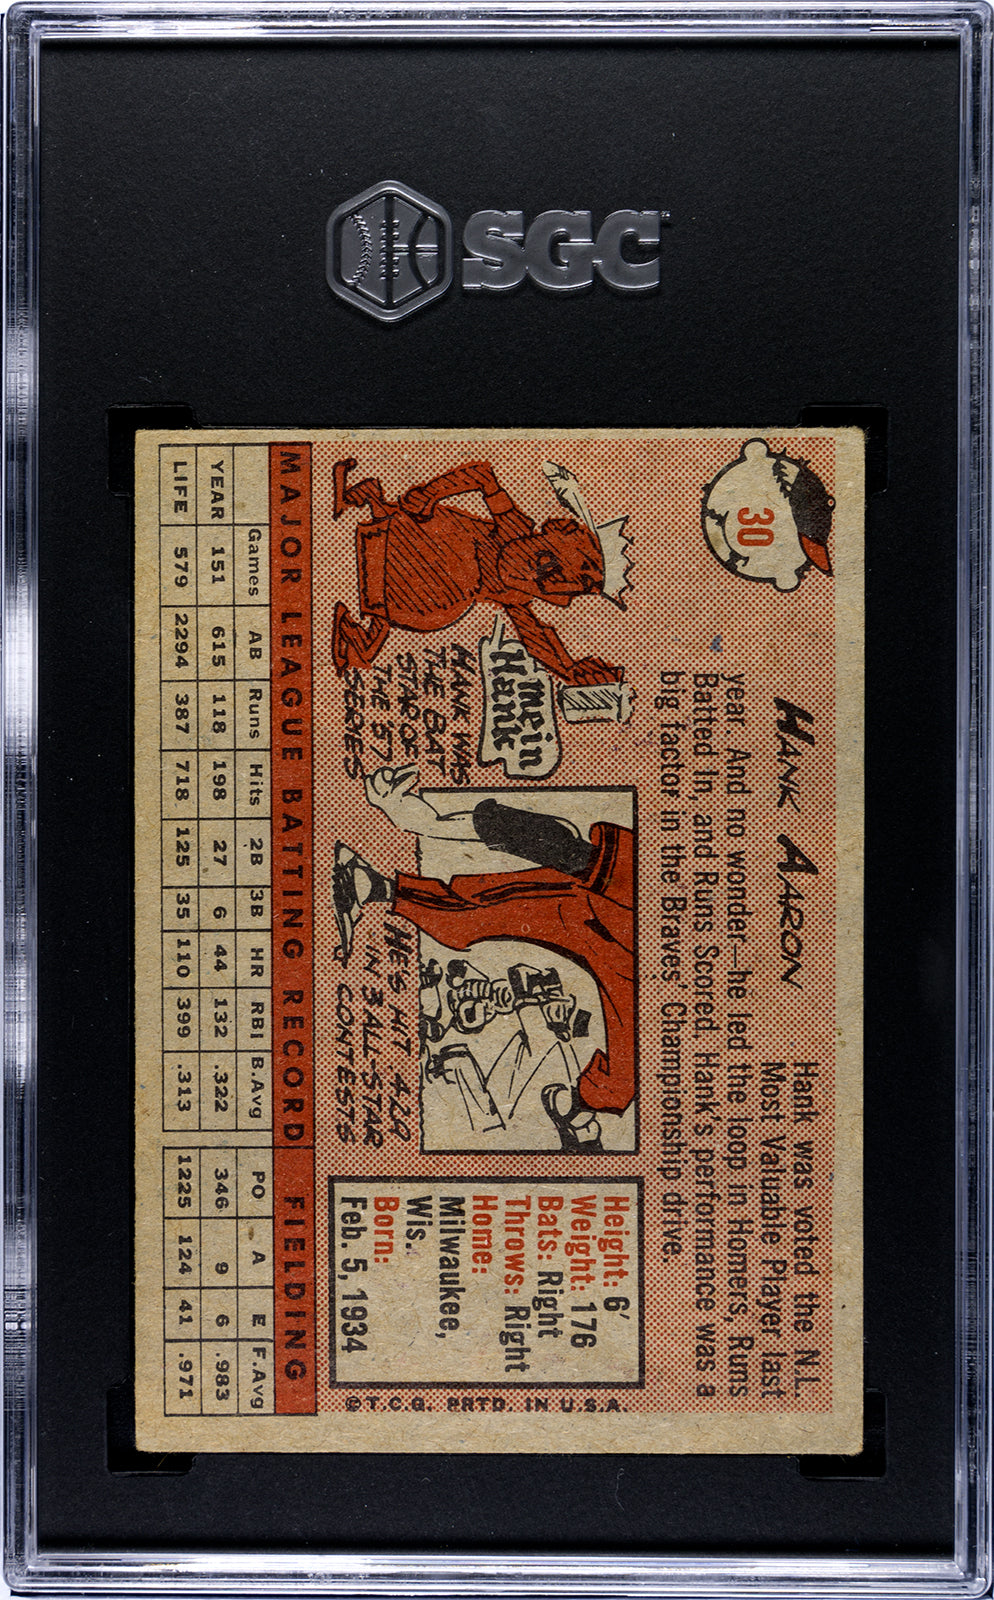 SGC
30
HANK AARON
Hank was voted the N.L.
Most Valuable Player last
year. And no wonder—he led the loop in Homers, Runs
Batted In, and Runs Scored. Hank's performance was a
big factor in the Braves' Championship drive.
Mein
Hank
HANK WAS
THE BAT
STAR OF
THE '57
SERIES
HE'S HIT .429
IN 3 ALL-STAR
CONTESTS
Height: 6'
Weight: 176
Bats: Right
Throws: Right
Home:
Milwaukee,
Wis.
Born:
Feb. 5, 1934
©T.C.G. PRTD. IN U.S.A.
MAJOR LEAGUE BATTING RECORD FIELDING
Games AB Runs Hits 2B 3B HR RBI B.Avg PO A E F.Avg
YEAR 151 615 118 198 27 6 44 132 .322 346 9 6 .983
LIFE 579 2294 387 718 125 35 110 399 .313 1225 124 41 .971